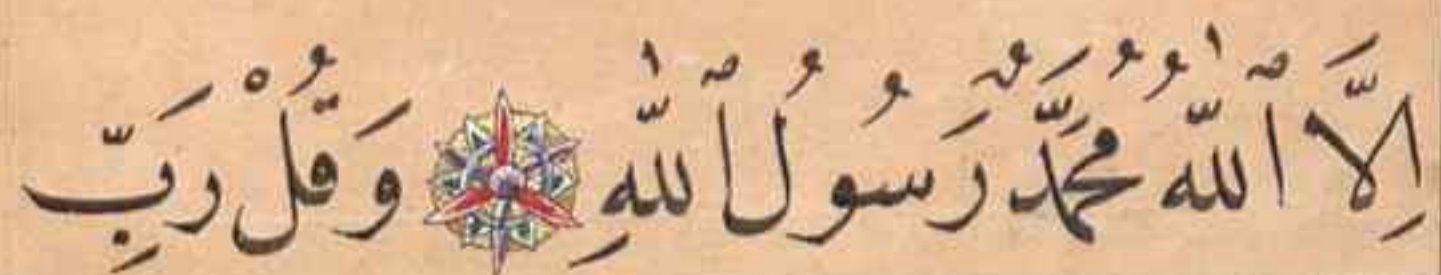 اِلَّا ٱللّٰهُ مُحَمَّدٌ رَسُولُ ٱللّٰهِ وَقُلْ رَبِّ